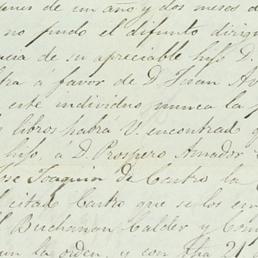 de un año y dos meses d
no pudo el difunto dirigi
cia de su apreciable hijo D.
á favor de D. Juan
este individuo nunca la
libros habra V. encontrado q
hijo, á D. Prospero Amador
Jose Joaquin de Castro la
citado Castro que se los en
Buchanan Calder y Com
la orden, y con fha 21 d